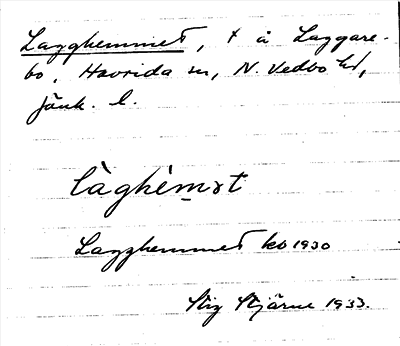 Lagghemmet, + å Laggare-
bo, Haurida sn, N. Vedbo hd,
Jönk. l.
làghèmət
Lagghemmet ko 1930
Stig Stjärne 1933.